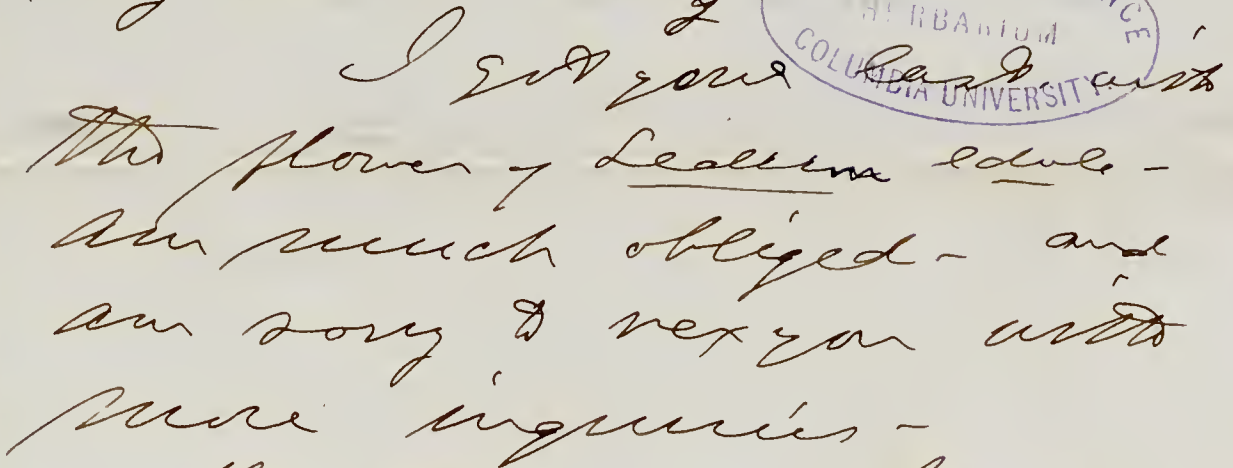 HERBARIUM
COLUMBIA UNIVERSITY.
I got your last, with
the flower of Sedum edule -
am much obliged - and
am sorry to vex you with
more inquiries -